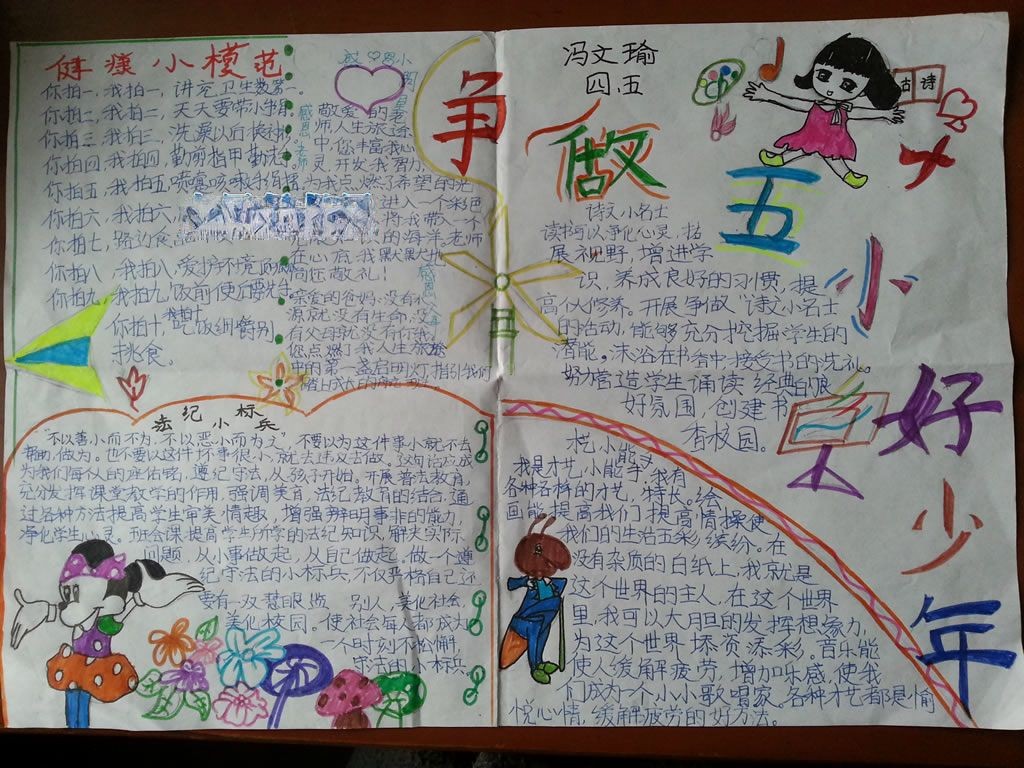 健康小模范
你拍一，我拍一，讲究卫生数第一。
你拍二，我拍二，天天要带小手绢。
你拍三，我拍三，洗澡以后换衬衫。
你拍四，我拍四，勤剪指甲勤洗
你拍五，我拍五，喷嚏咳嗽
你拍六，我拍六，
你拍七，路边食
你拍八，我拍八，爱护环境
你拍九，我拍九，饭前便后要洗手
你拍十，我拍十，吃饭细嚼别
挑食。
感恩小
感恩老师
敬爱的老
师，人生旅途
中，你丰富我心
灵，开发我智力，
为我点燃了希望的光
进入一个彩色
将我带入一个
的海洋，老师
在心底，我默默地
向您敬礼！
亲爱的爸妈：没有水
源就没有生命，没
有父母就没有你我。
您点燃了我人生旅途
中的第一盏启明灯，指引我们
争
做
五
小
好
少
年
冯文瑜
四、五
古诗
诗文小名士
读书可以净化心灵，拓
展视野，增进学
识，养成良好的习惯，提
高个人修养。开展争做“诗文小名士
的活动，能够充分挖掘学生的
潜能。沐浴在书香中，接受书的洗礼。
努力营造学生诵读经典的良
好氛围，创建书
香校园。
法纪小标兵
“不以善小而不为，不以恶小而为之”，不要以为这件事小就不去
帮助做为。也不要以这件坏事很小，就去违义去做。这句话应成
为我们每个人的座佑铭，遵纪守法，从孩子开始。开展普法教育，
充分发挥课堂教学的作用，强调美育，法纪教育的结合，通
过各种方法提高学生审美情趣，增强辨明事非的能力，
净化学生心灵。班会课提高学生所学的法纪知识，解决实际
问题，从小事做起，从自己做起，做一个遵
纪守法的小标兵，不仅严格自己还
要有一双慧眼监 别人，美化社会，
美化校园。使社会每人都成为
一个时刻不松懈，
守法的小标兵
艺小能手
我是才艺小能手，我有
各种各样的才艺，特长。绘
画能提高我们提高情操，使
我们的生活五彩缤纷。在
没有杂质的白纸上，我就是
这个世界的主人，在这个世界
里，我可以大胆的发挥想象力，
为这个世界添资添彩。音乐能
使人缓解疲劳，增加乐感，使我
们成为一个小小歌唱家。各种才艺都是愉
悦心情，缓解疲劳的好方法。